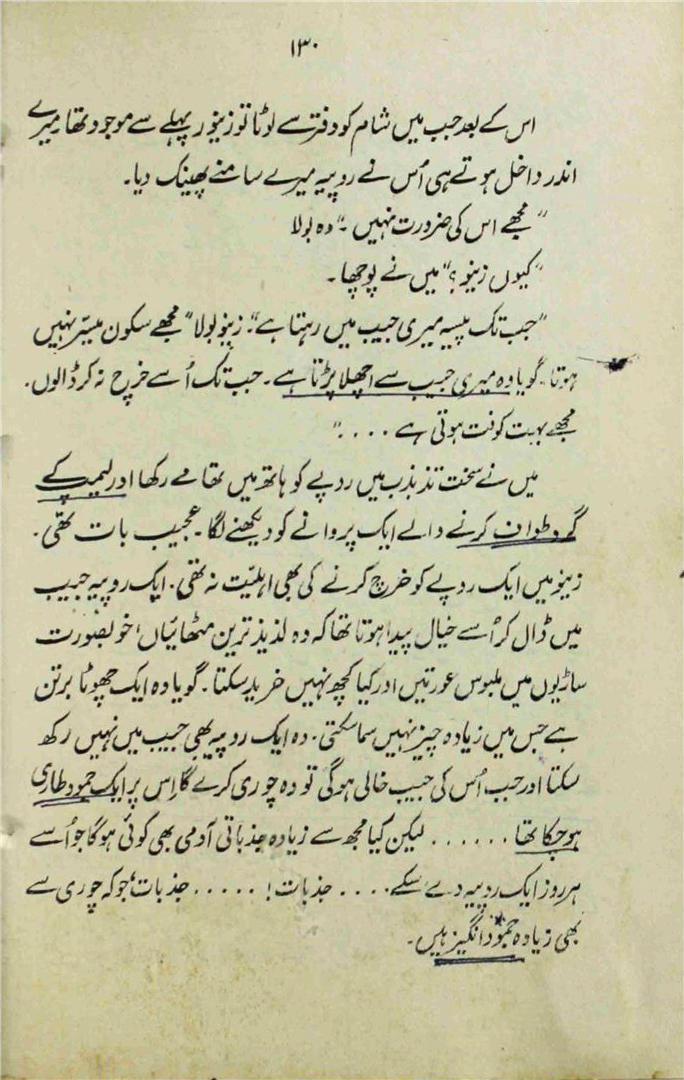 ۱۳۰
اس کے بعد جب میں شام کو دفتر سے لوٹا تو زینو پہلے سے موجود تھا۔ میرے
اندر داخل ہوتے ہی اُس نے روپیہ میرے سامنے پھینک دیا۔
”مجھے اس کی ضرورت نہیں۔“ وہ بولا
”کیوں زینو؟“ میں نے پوچھا۔
”جب تک پیسہ میری جیب میں رہتا ہے۔“ زینو بولا ”مجھے سکون میسّر نہیں
ہوتا۔ گویا وہ میری جیب سے اچھلا پڑتا ہے۔ جب تک اُسے خرچ نہ کر ڈالوں۔
مجھے بہت کوفت ہوتی ہے ....“
میں نے سخت تذبذب میں روپے کو ہاتھ میں تھامے رکھا اور لیمپ کے
گرد طواف کرنے والے ایک پروانے کو دیکھنے لگا۔ عجیب بات تھی۔
زینو میں ایک روپے کو خرچ کرنے کی بھی اہلیّت نہ تھی۔ ایک روپیہ جیب
میں ڈال کر اُسے خیال پیدا ہوتا تھا کہ وہ لذیذ ترین مٹھائیاں، خوبصورت
ساڑیوں میں ملبوس عورتیں اور کیا کچھ نہیں خرید سکتا۔ گویا وہ ایک چھوٹا برتن
ہے جس میں زیادہ چیز نہیں سما سکتی۔ وہ ایک روپیہ بھی جیب میں نہیں رکھ
سکتا اور جب اُس کی جیب خالی ہوگی تو وہ چوری کرے گا۔ اِس پر ایک جمود طاری
ہو چکا تھا ...... لیکن کیا مجھ سے زیادہ جذباتی آدمی بھی کوئی ہوگا جو اُسے
ہر روز ایک روپیہ دے سکے .... جذبات! ..... جذبات، جو کہ چوری سے
بھی زیادہ جمود انگیز ہیں۔